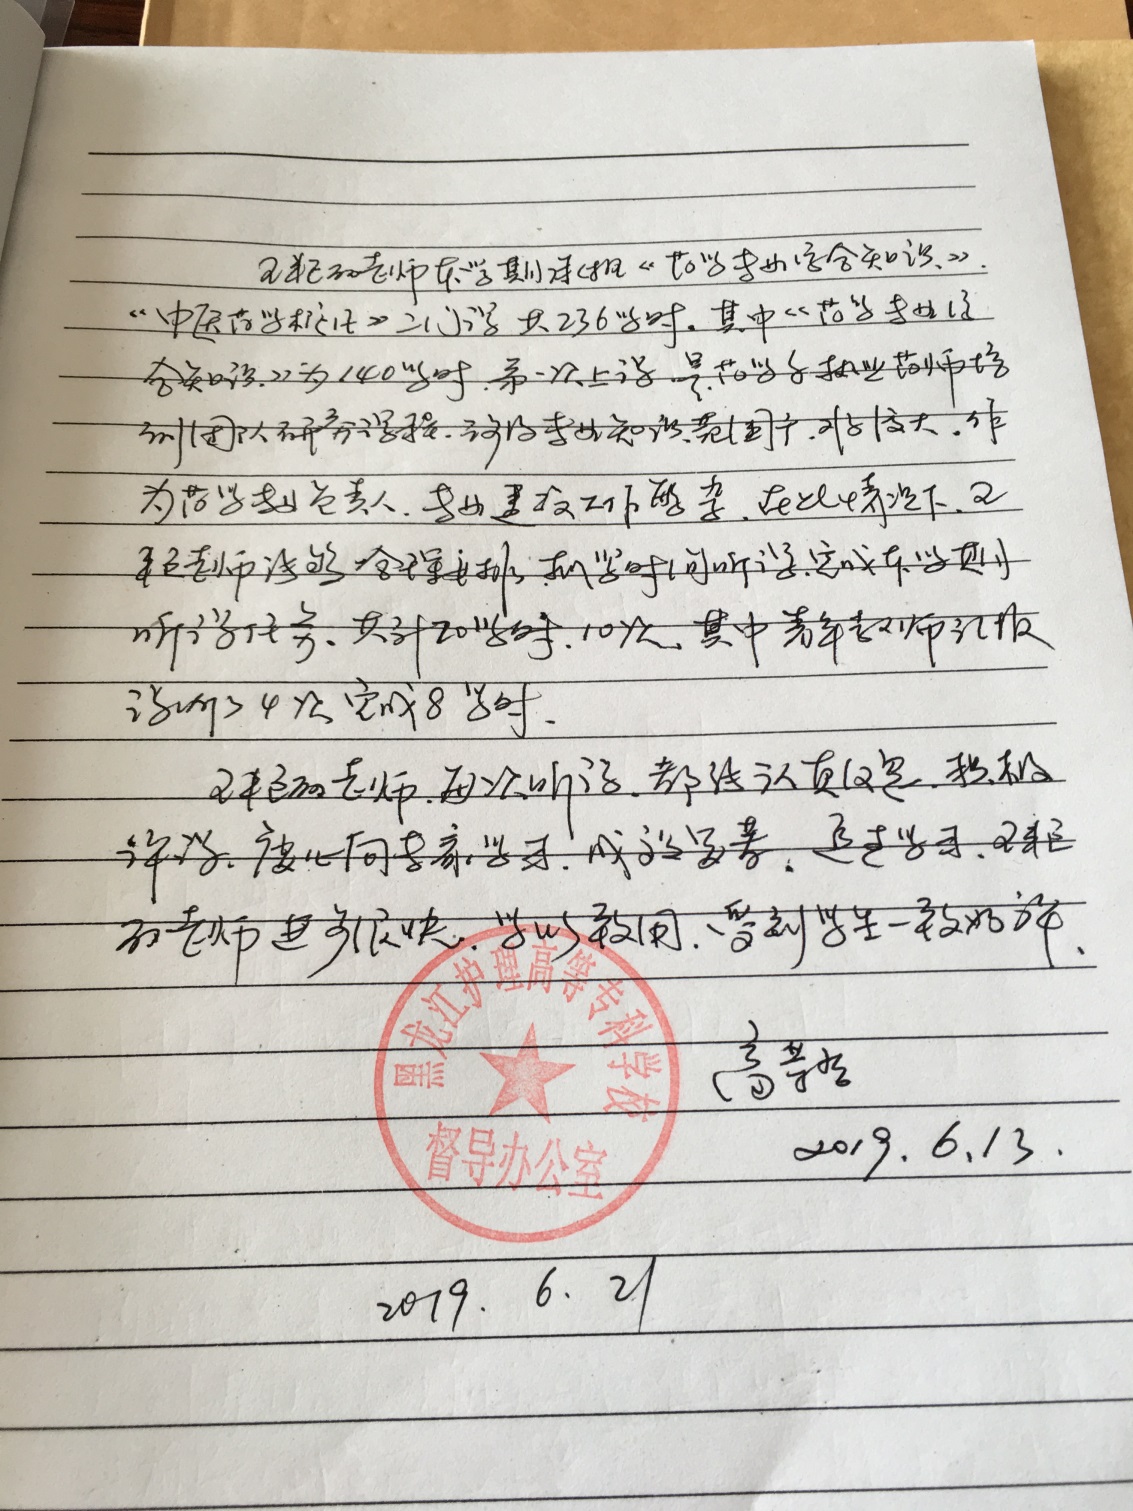 老师本学期承担《药学专业综合知识》.
《中医药学概论》二门课共236学时。其中《药学专业综
合知识》为140学时.第一次上课是药学系执业药师培
训团队研究课程.涉及专业知识范围广.难度较大.作
为药学专业负责人.专业建设工作繁杂.在此情况下.王
老师能够合理安排.抓学时间听课.完成本学期
听课任务.共计20学时.10次.其中青年教师汇报
课听了4次完成8学时.
老师.每次听课.都能认真记笔.积极
评课.虚心向专家学习.成效显著.
老师进步很快.学以致用.受到学生一致好评.
黑龙江护理高等专科学校
督导办公室
2019.6.13.
2019.6.21